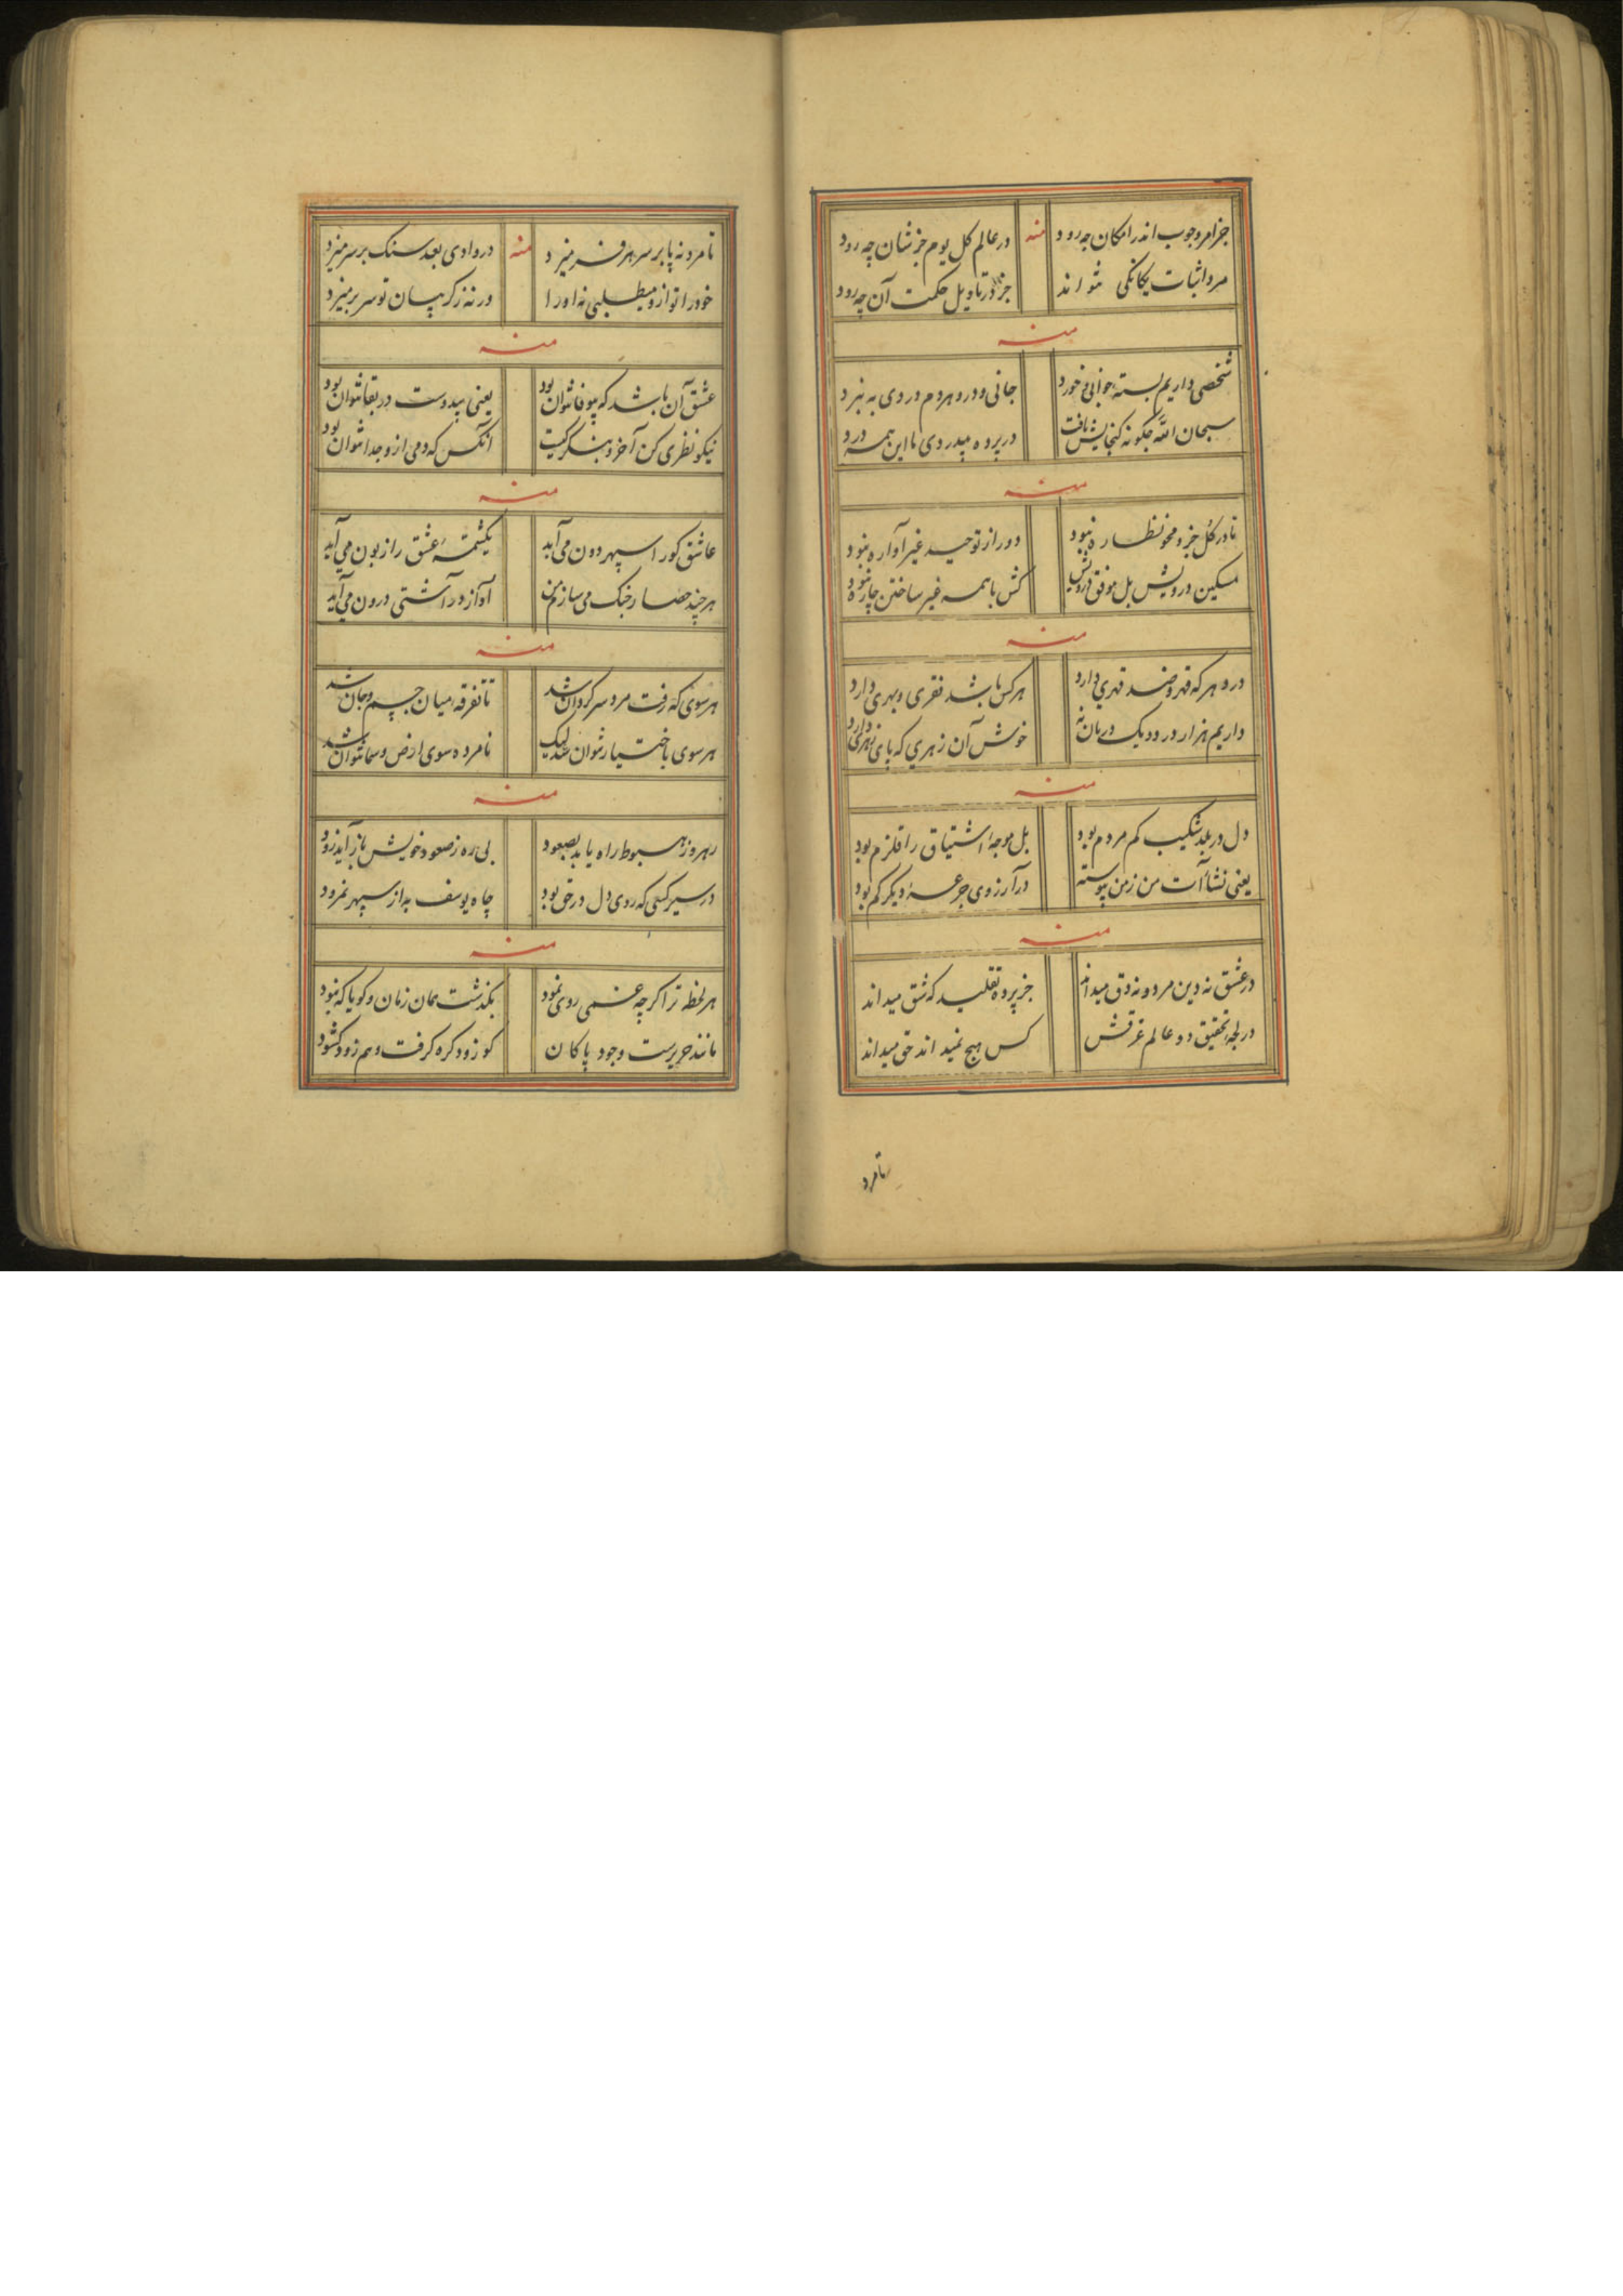 جز امر وجوب اندر امکان چه رود منه در عالم کل یوم جز شان چه رود
مرد اثبات یکانکی نتواند جز در تاویل حکمت آن چه رود
منه
شخصی داریم بسته خوابی و خورد جانی و درو هر دم دردی به نبرد
سبحان الله چکونه کنجایش یافت در پرده بیدردی ما این همه درد
منه
تا در کل جزو محو نظاره نبود دور از توحید غیر آواره نبود
مسکین درویش بل موفق درویش کش با همه غیر ساختن چاره نبود
منه
درد هر که قهر و ضد قهری دارد هر کس باشد فقری و بهری دارد
داریم هزار درد و یک درمان نه خوش آن زهری که پای زهری دارد
منه
دل در بعد شکیب کم مردم بود بل موجه اشتیاق را قلزم بود
یعنی نشآت من زمن پیوسته در آرزوی جرعه دیکر کم بود
منه
در عشق نه دین مرد و نه دق میداند جز پرده تقلید که شق میداند
در لجه تحقیق دو عالم غرقش کس هیچ نمیداند حق میداند
تا مرد
تا مرد نه پا بر سر هر فر میزد منه در وادی بعد سنک بر سر میزد
خود را تو ازو میطلبی نه او را ور نه ز کریبان تو سر بر میزد
منه
عشق آن باشد که بیوفا نتوان بود یعنی بیدوست در بقا نتوان بود
نیکو نظری کن آخر و بنکر کیست آنکس که دمی ازو جدا نتوان بود
منه
عاشق کو را سپهر دون می آید یکشمه عشق را زبون می آید
هر چند حصار جنک می سازم من آواز در آشتی درون می آید
منه
هر سوی که رفت مرد سرکردان شد تا تفرقه میان جسم و جان شد
هر سوی باختیار نتوان شد لیک نامرده سوی ارض و سما نتوان شد
منه
رهرو ز هبوط راه یابد بصعود بی ره ز صعود خویش باز آید زود
در سیر کسی که روی دل در حق بود چاه یوسف به از سپهر نمرود
منه
هر لحظه ترا کر چه غمی روی نمود بکذشت همان زمان و کویا که نبود
مانند حریرست وجود پاکان کو زود کره کرفت و هم زود کشود